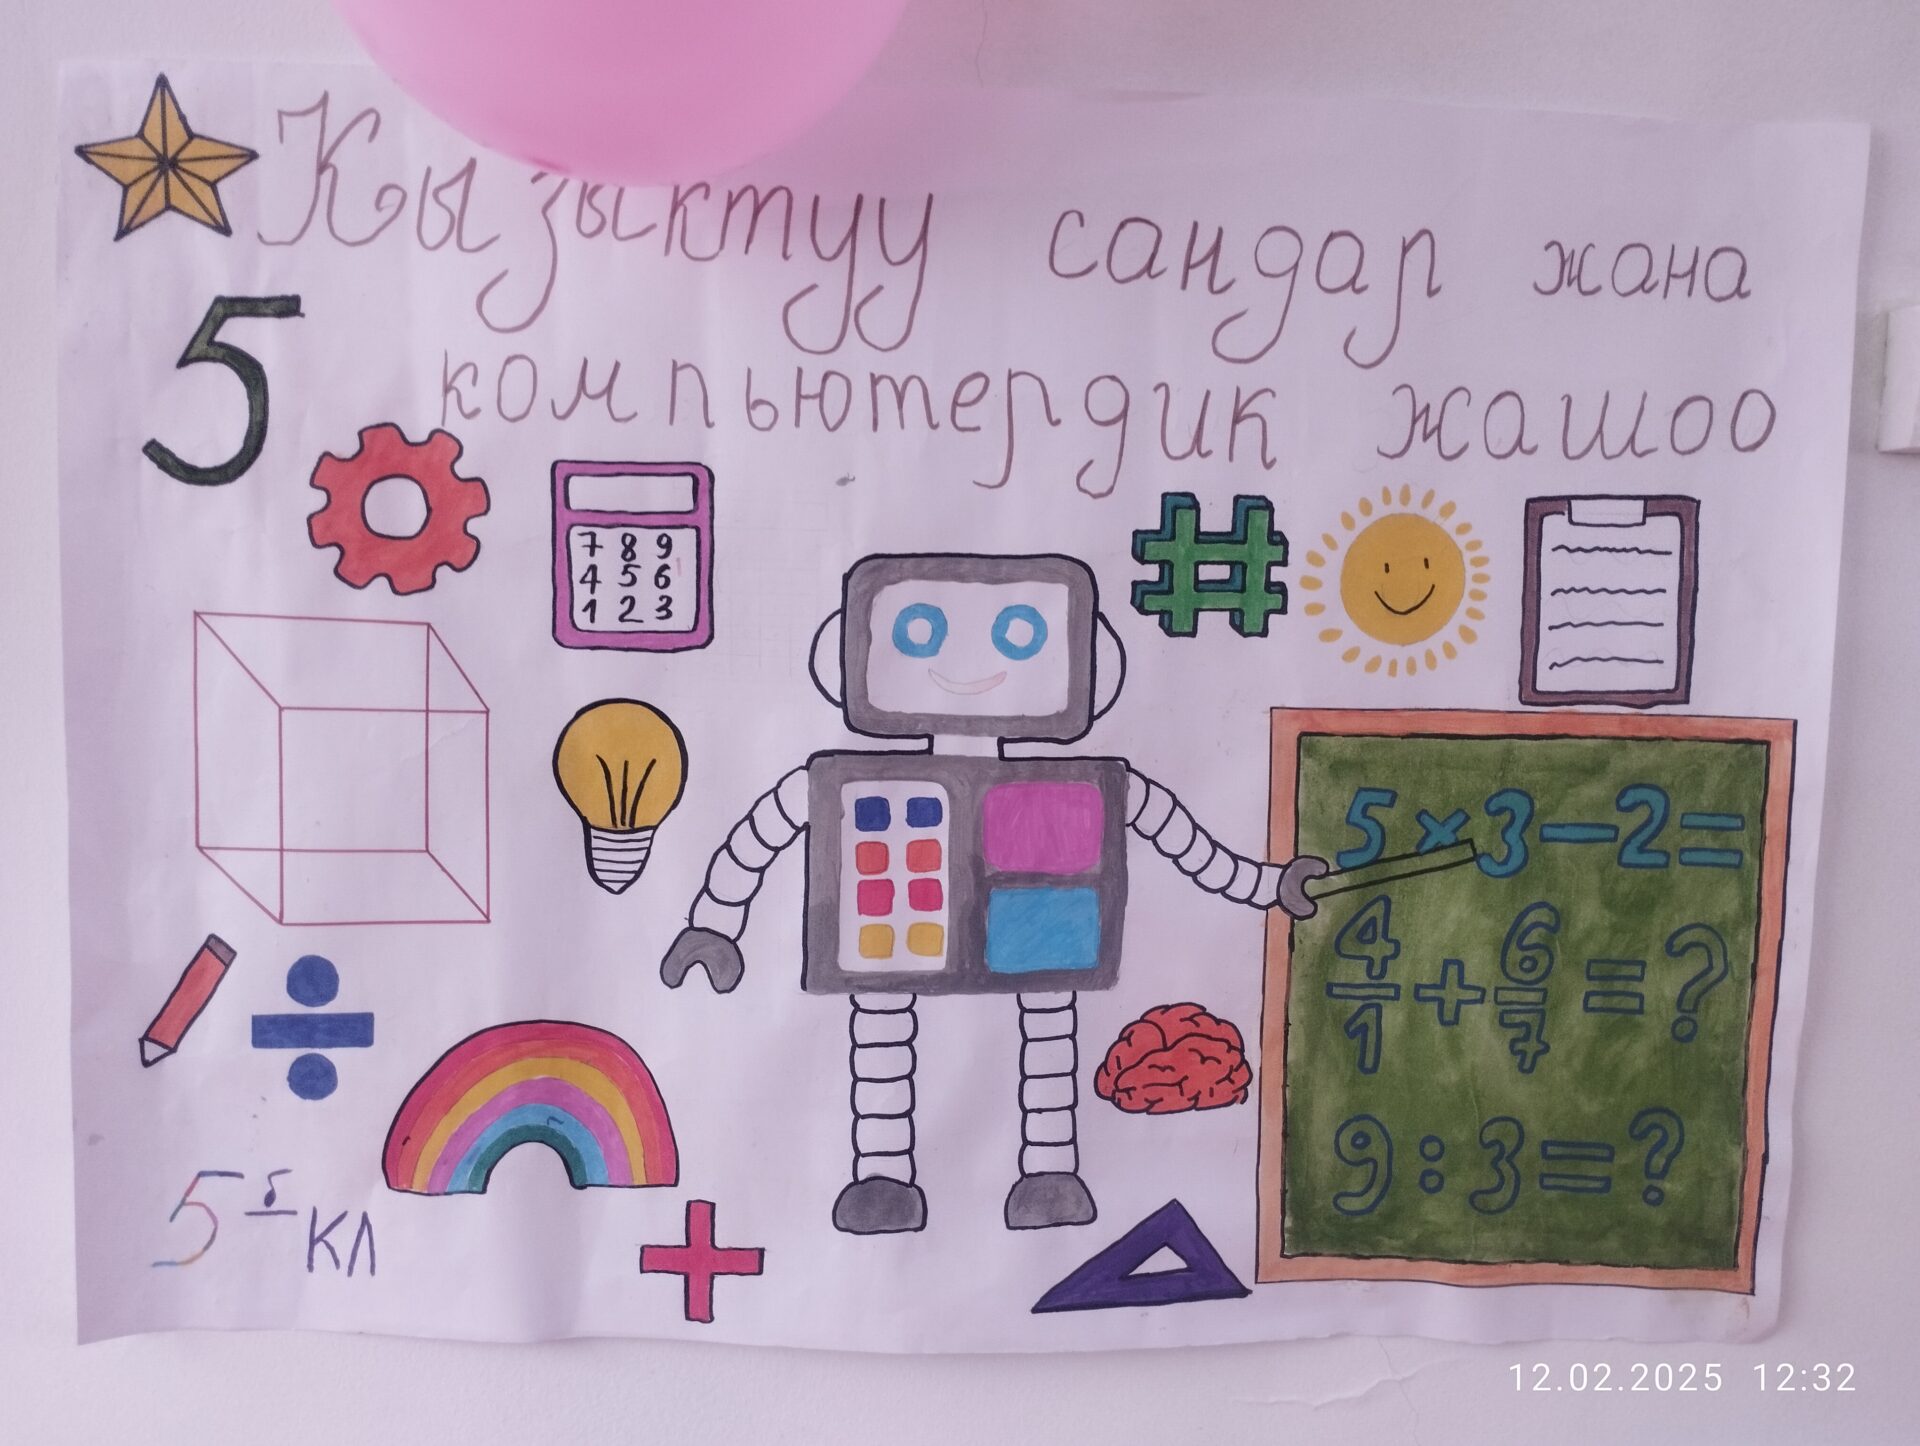 Кызыктуу сандар жана
компьютердик жашоо
5
7 8 9
4 5 6
1 2 3
#
5×3−2=
4/1+6/7=?
9:3=?
5 б кл
12.02.2025 12:32